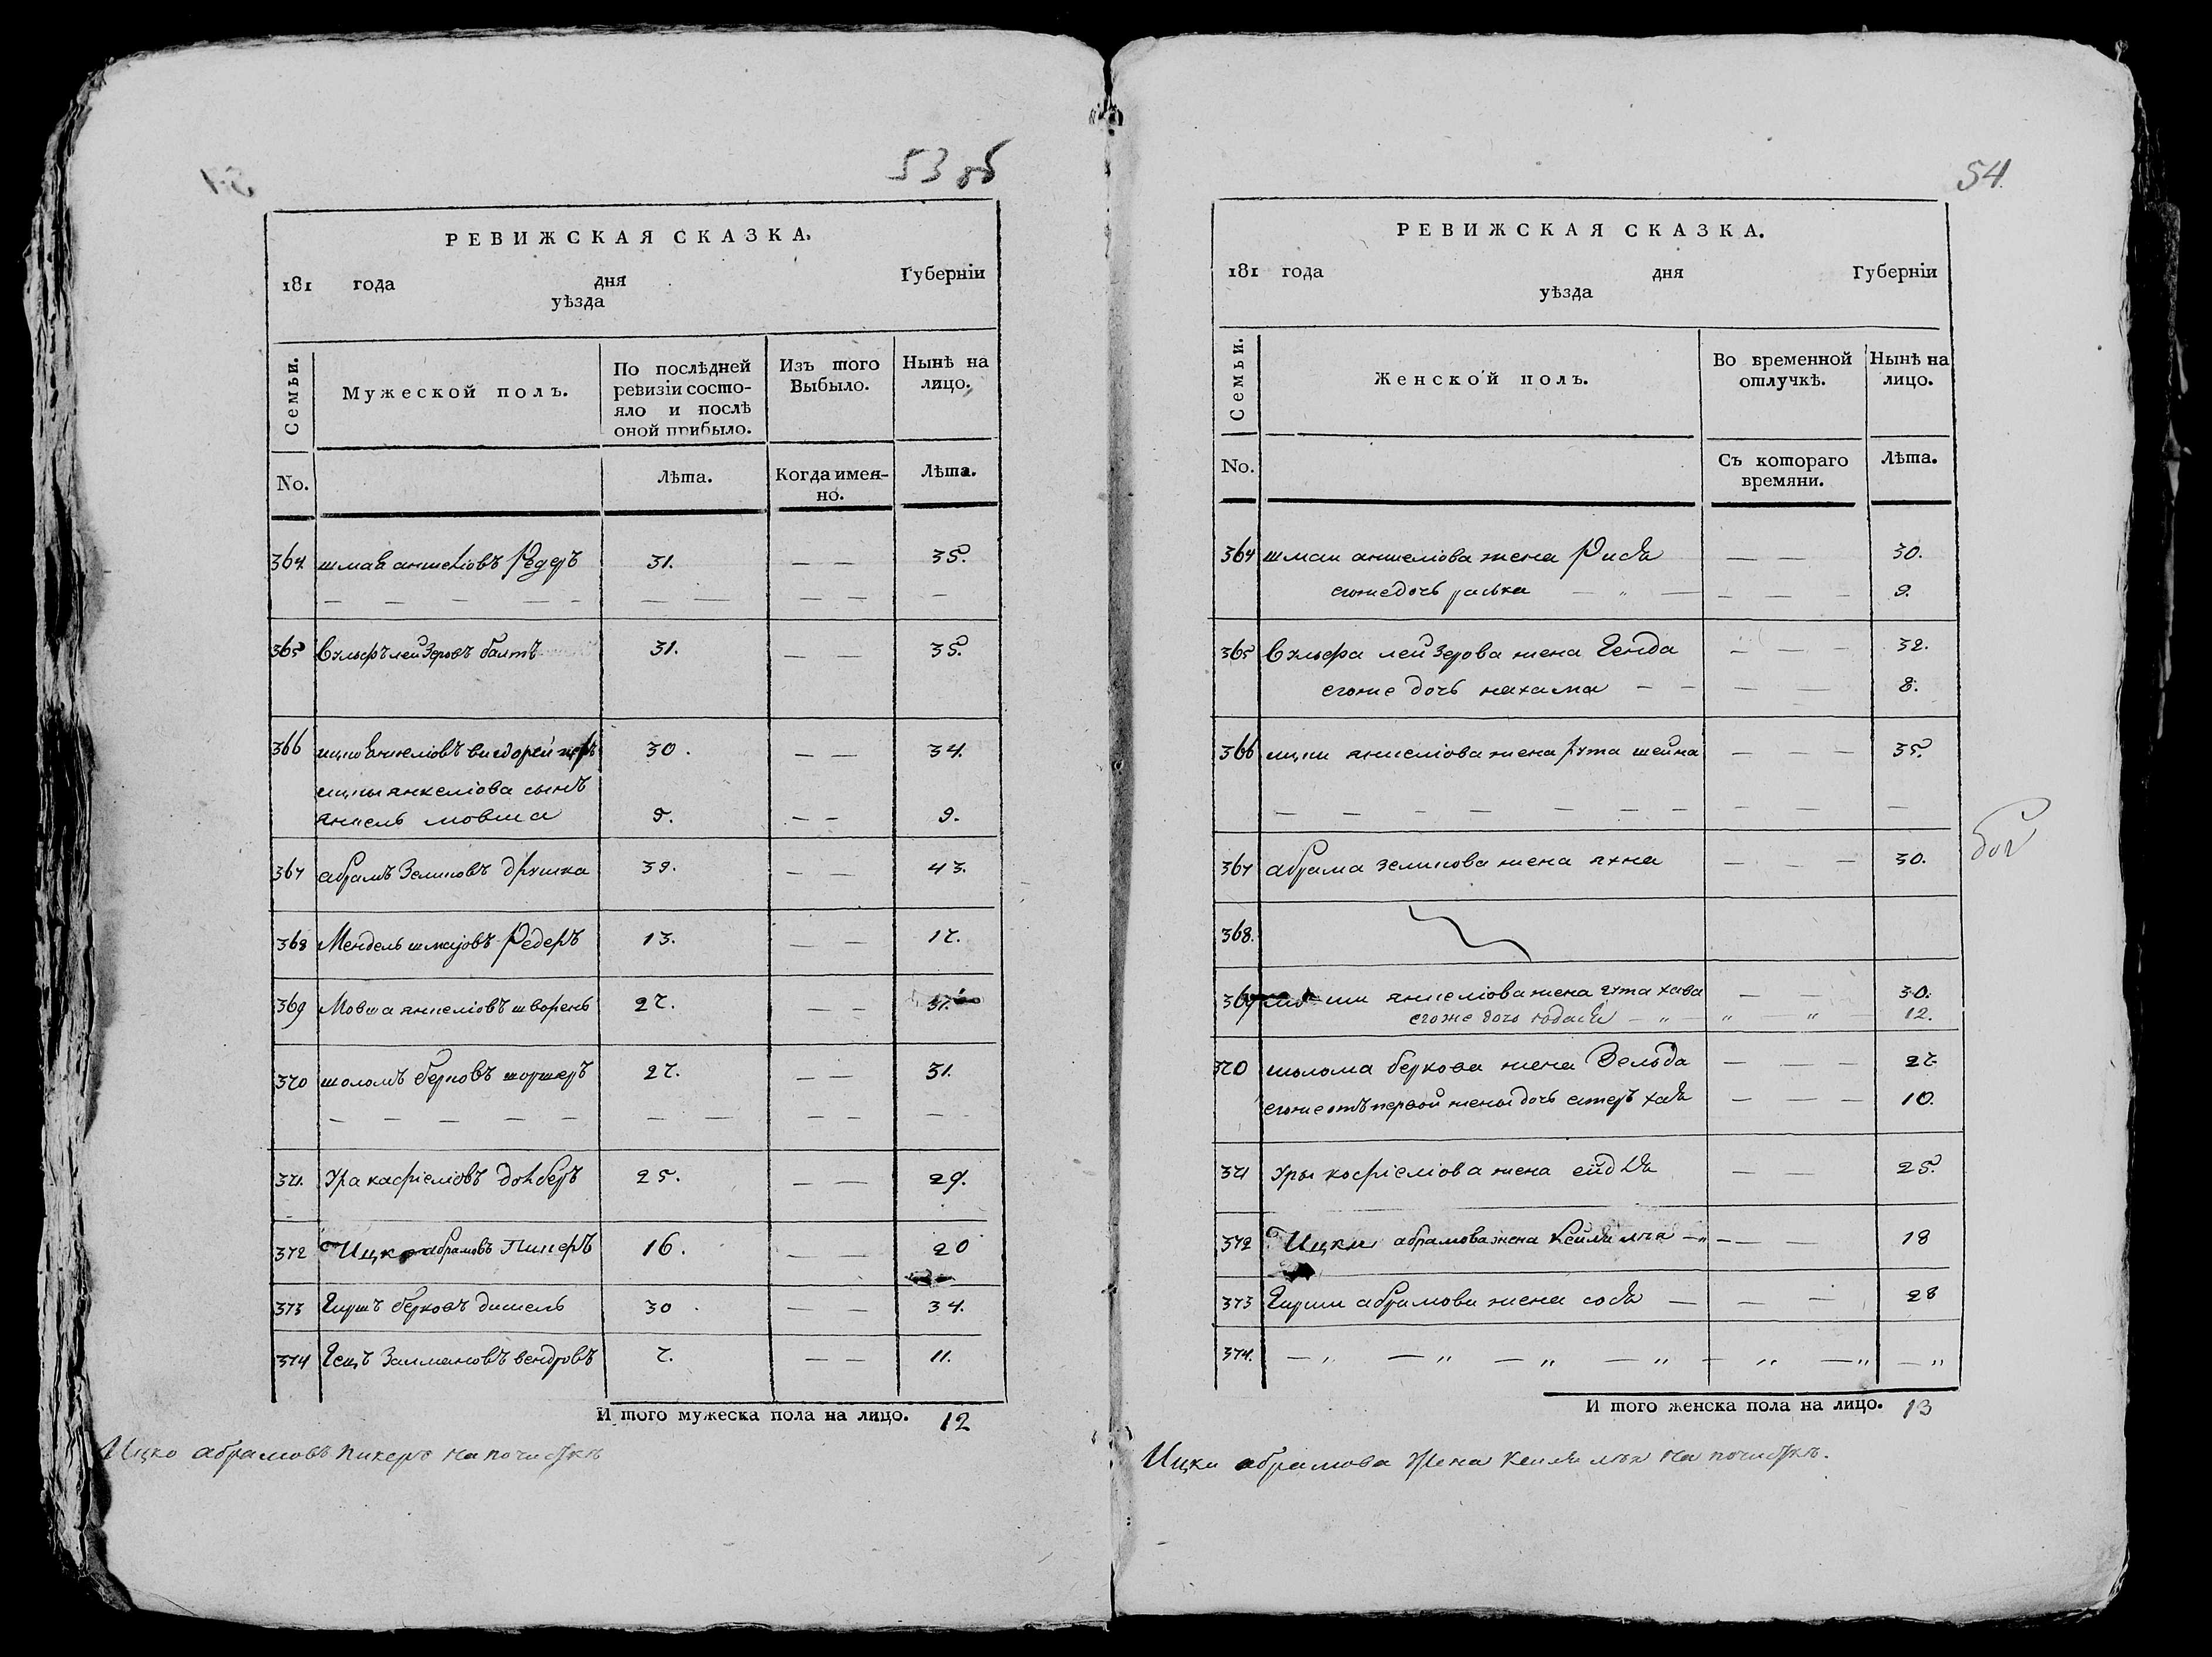 53 об
РЕВИЖСКАЯ СКАЗКА.
181 года дня Губерніи
уѣзда
Семьи.
Мужеской полъ.
По послѣдней ревизіи состо-
яло и послѣ
оной прибыло.
Изъ того
Выбыло.
Нынѣ на
лицо.
No.
Лѣта.
Когда имен-
но.
Лѣта.
364 шмая аншеліовъ Редеръ 31. — — 35.
365 Вульфъ лейзеровъ балтъ 31. — — 35.
366 ицко янкеліовъ 30. — — 34.
ицки янкеліова сынъ
янкель мовша 9. — — 9.
367 абрамъ Зеликовъ друшка 39. — — 43.
368 Мендель шмаіовъ Редеръ 13. — — 17.
369 Мовша янкеліовъ шворень 27. — — 31.
370 шоломъ берковъ шоршеръ 27. — — 31.
371. Ура касріеліовъ долберъ 25. — — 29.
372 Ицко абрамовъ Пикеръ 16. — — 20
373 Гиршъ берковъ дишель 30 — — 34.
374 Гецъ Залмановъ вендровъ 7. — — 11.
И того мужеска пола на лицо. 12
Ицко абрамовъ пикеръ на почисткѣ
54.
РЕВИЖСКАЯ СКАЗКА.
181 года дня Губерніи
уѣзда
Семьи.
Женской полъ.
Во временной
отлучкѣ.
Нынѣ на
лицо.
No.
Съ котораго
времяни.
Лѣта.
364 шмаи аншеліова жена Рися — — 30.
егоже дочь раська — „ — — — — 9.
365 Вульфа лейзерова жена Генда — — — 32.
егоже дочь нахама — — — — 8.
366 ицки янкеліова жена рута шейна — — — 35.
367 абрама зеликова жена яхна — — — 30.
368.
369 мовши янкеліова жена гута хава — — 30.
егоже дочь — „ — „ — „ — 12.
370 шолома беркова жена Зельда — — — 27
егоже отъ первой жены дочь естеръ хая — — — 10.
371 Уры косріеліова жена ейдля — — 25.
372 Ицки абрамова жена Кейля лея — „ — — — 18
373 Гирши абрамова жена сося — — — 28
374. — „ — „ — „ — „ — „ — „ — „
И того женска пола на лицо. 13
Ицки абрамова жена Кейля лея на почисткѣ.